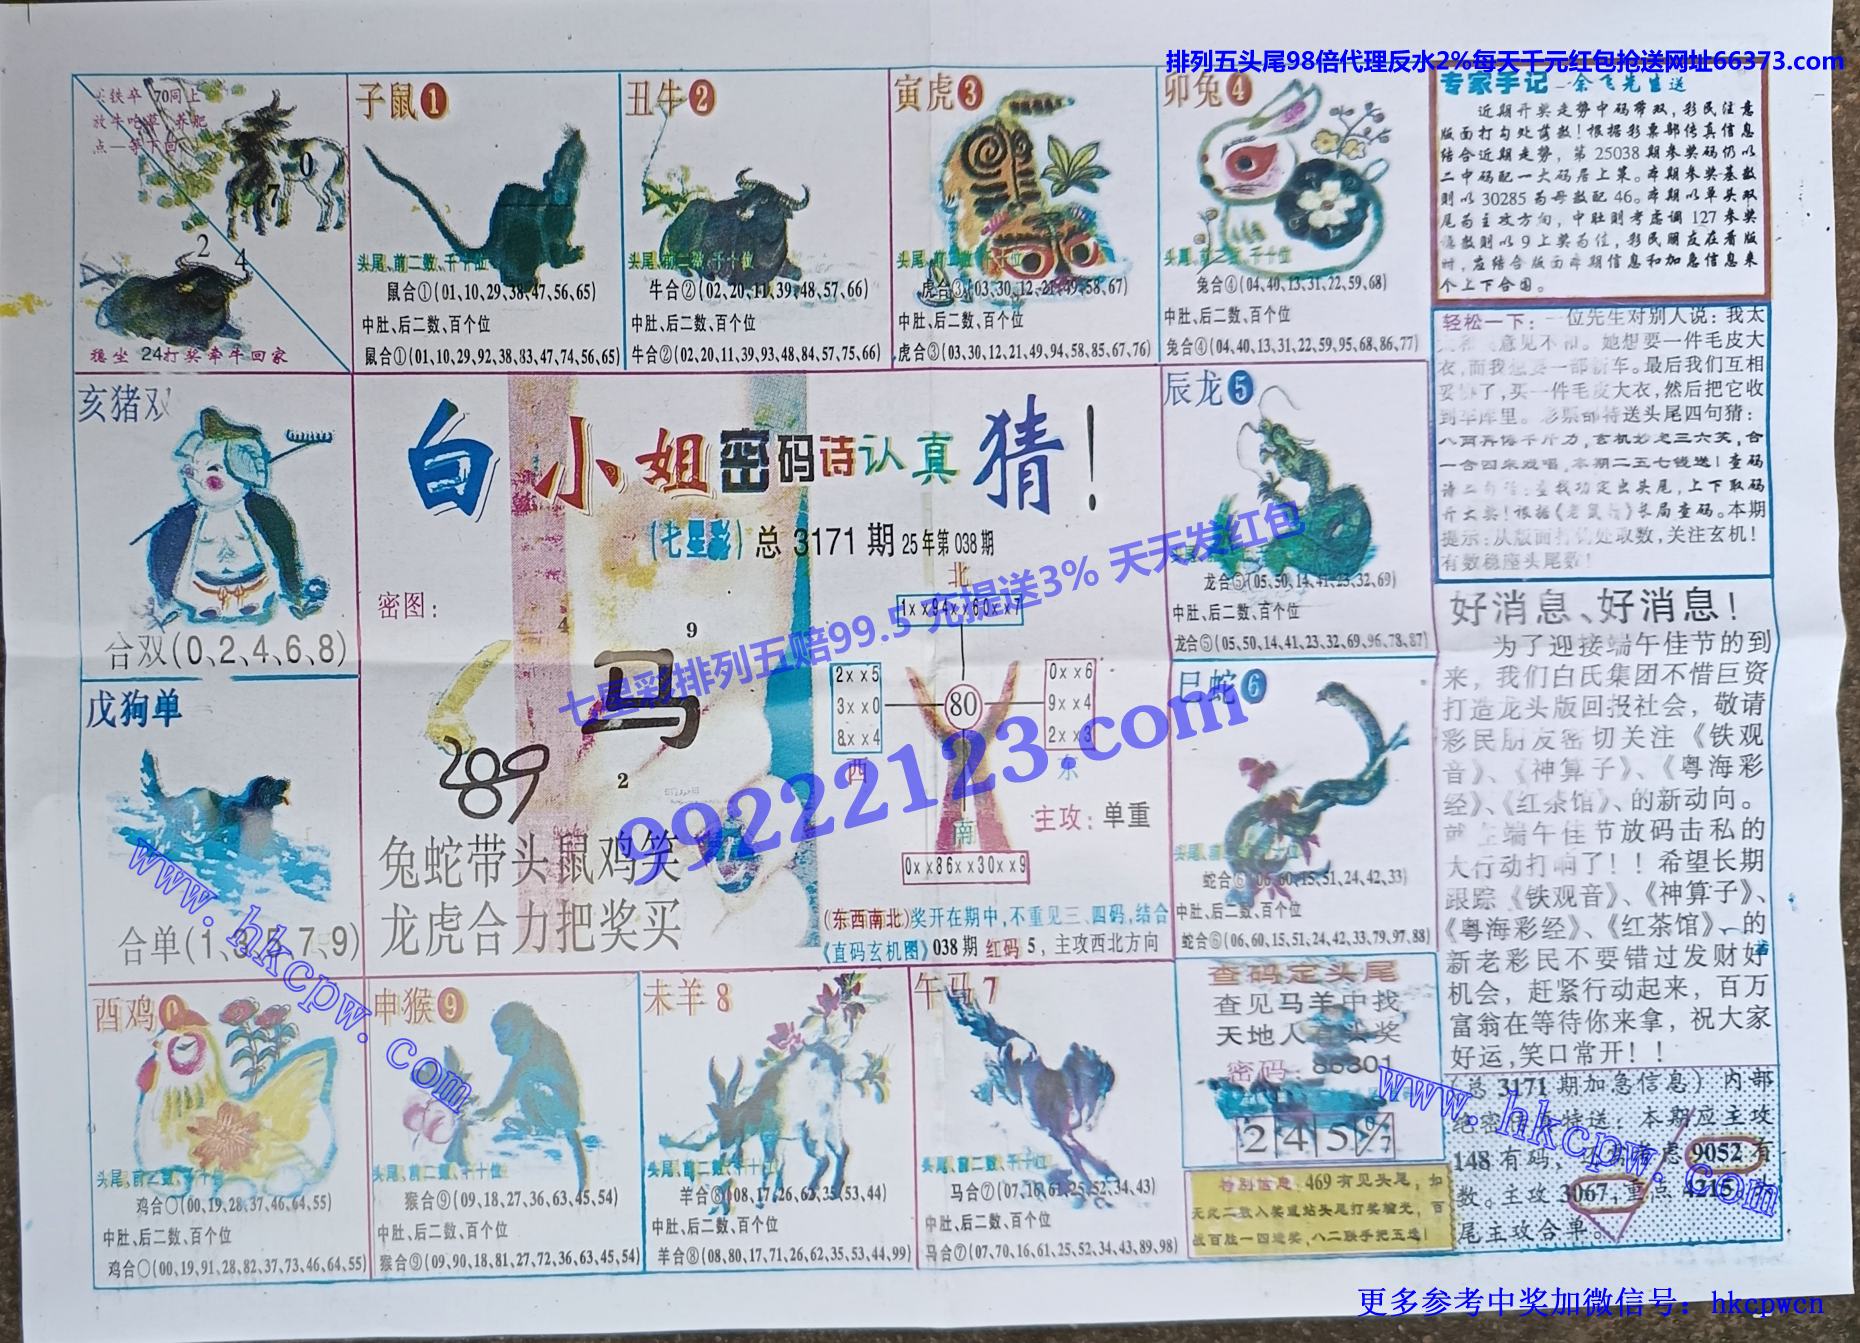 排列五头尾98倍代理反水2%每天千元红包抢送网址66373.com
放牛吃草 养肥
70同上
0
7
2
4
稳坐 24打奖牵牛回家
子鼠①
头尾、前二数、千十位
鼠合①(01,10,29,38,47,56,65)
中肚、后二数、百个位
鼠合①(01,10,29,92,38,83,47,74,56,65)
丑牛②
头尾、前二数、千十位
牛合②(02,20,11,39,48,57,66)
中肚、后二数、百个位
牛合②(02,20,11,39,93,48,84,57,75,66)
寅虎③
头尾、前二数、千十位
虎合③(03,30,12,21,49,58,67)
中肚、后二数、百个位
虎合③(03,30,12,21,49,94,58,85,67,76)
卯兔④
头尾、前二数、千十位
兔合④(04,40,13,31,22,59,68)
中肚、后二数、百个位
兔合④(04,40,13,31,22,59,95,68,86,77)
专家手记 -余飞先生送
近期开奖走势中码带双,彩民注意
版面打勾处落数!根据彩票部传真信息
结合近期走势,第25038期参奖码仍以
二中码配一大码居上策。本期参奖基数
则以30285为母数配46。本期以单头双
尾为主攻方向,中肚则考虑调127参奖
数则以9上奖为位,彩民朋友在看版
时,应结合版面本期信息和加急信息来
个上下合围。
轻松一下:一位先生对别人说:我太
意见不和。她想要一件毛皮大
衣,而我想要一部新车。最后我们互相
妥协了,买一件毛皮大衣,然后把它收
到车库里。彩票部特送头尾四句猜:
八两再添千斤力,玄机妙走三六英,合
一合四来戏唱,本期二五七钱送!查码
上下取码
开大奖!根据 长局查码。本期
提示:从版面打勾处取数,关注玄机!
有数稳座头尾数!
亥猪双
合双(0、2、4、6、8)
戊狗单
合单(1、3、5、7、9)
白小姐密码诗认真猜!
(七星彩)总 3171 期 25年第 038 期
密图:
4
9
马
2
289
兔蛇带头鼠鸡笑
龙虎合力把奖买
北
1××94××60××7
2××5
3××0
8××4
西
80
0××6
9××4
2××3
东
南
0××86××30××9
主攻:单重
(东西南北)奖开在期中,不重见三、四码,结合
《直码玄机图》038期 红码 5,主攻西北方向
七星彩排列五赔99.5 充提送3% 天天发红包
99222123.com
辰龙⑤
头尾、前
龙合⑤(05,50,14,41,23,32,69)
中肚、后二数、百个位
龙合⑤(05,50,14,41,23,32,69,96,78,87)
巳蛇⑥
头尾、前二数、千十位
蛇合⑥(06,60,15,51,24,42,33)
中肚、后二数、百个位
蛇合⑥(06,60,15,51,24,42,33,79,97,88)
好消息、好消息!
为了迎接端午佳节的到
来,我们白氏集团不惜巨资
打造龙头版回报社会,敬请
彩民朋友密切关注《铁观
音》、《神算子》、《粤海彩
经》、《红茶馆》、的新动向。
就上端午佳节放码击私的
大行动打响了!!希望长期
跟踪《铁观音》、《神算子》、
《粤海彩经》、《红茶馆》、的
新老彩民不要错过发财好
机会,赶紧行动起来,百万
富翁在等待你来拿,祝大家
好运,笑口常开!!
酉鸡0
头尾、前二数、千十位
鸡合〇(00,19,28,37,46,64,55)
中肚、后二数、百个位
鸡合〇(00,19,91,28,82,37,73,46,64,55)
申猴⑨
头尾、前二数、千十位
猴合⑨(09,18,27,36,63,45,54)
中肚、后二数、百个位
猴合⑨(09,90,18,81,27,72,36,63,45,54)
未羊8
头尾、前二数、千十位
羊合⑧(08,17,26,62,35,53,44)
中肚、后二数、百个位
羊合⑧(08,80,17,71,26,62,35,53,44,99)
午马7
头尾、前二数、千十位
马合⑦(07,16,61,25,52,34,43)
中肚、后二数、百个位
马合⑦(07,70,16,61,25,52,34,43,89,98)
查码定头尾
查见马羊中找
天地人 头奖
密码:86301
2 4 5 9/7
特别信息:469有见头尾,如
无此二数入奖道站头尾打奖输光,百
战百胜一四进奖,八二联手把五送!
(总 3171 期加急信息)内部
绝密 特送:本期应主攻
148有码, 虑 9052 有
数。主攻3067,重点4215
尾主攻合单。
www.hkcpw.com
www.hkcpw.com
更多参考中奖加微信号:hkcpwcn